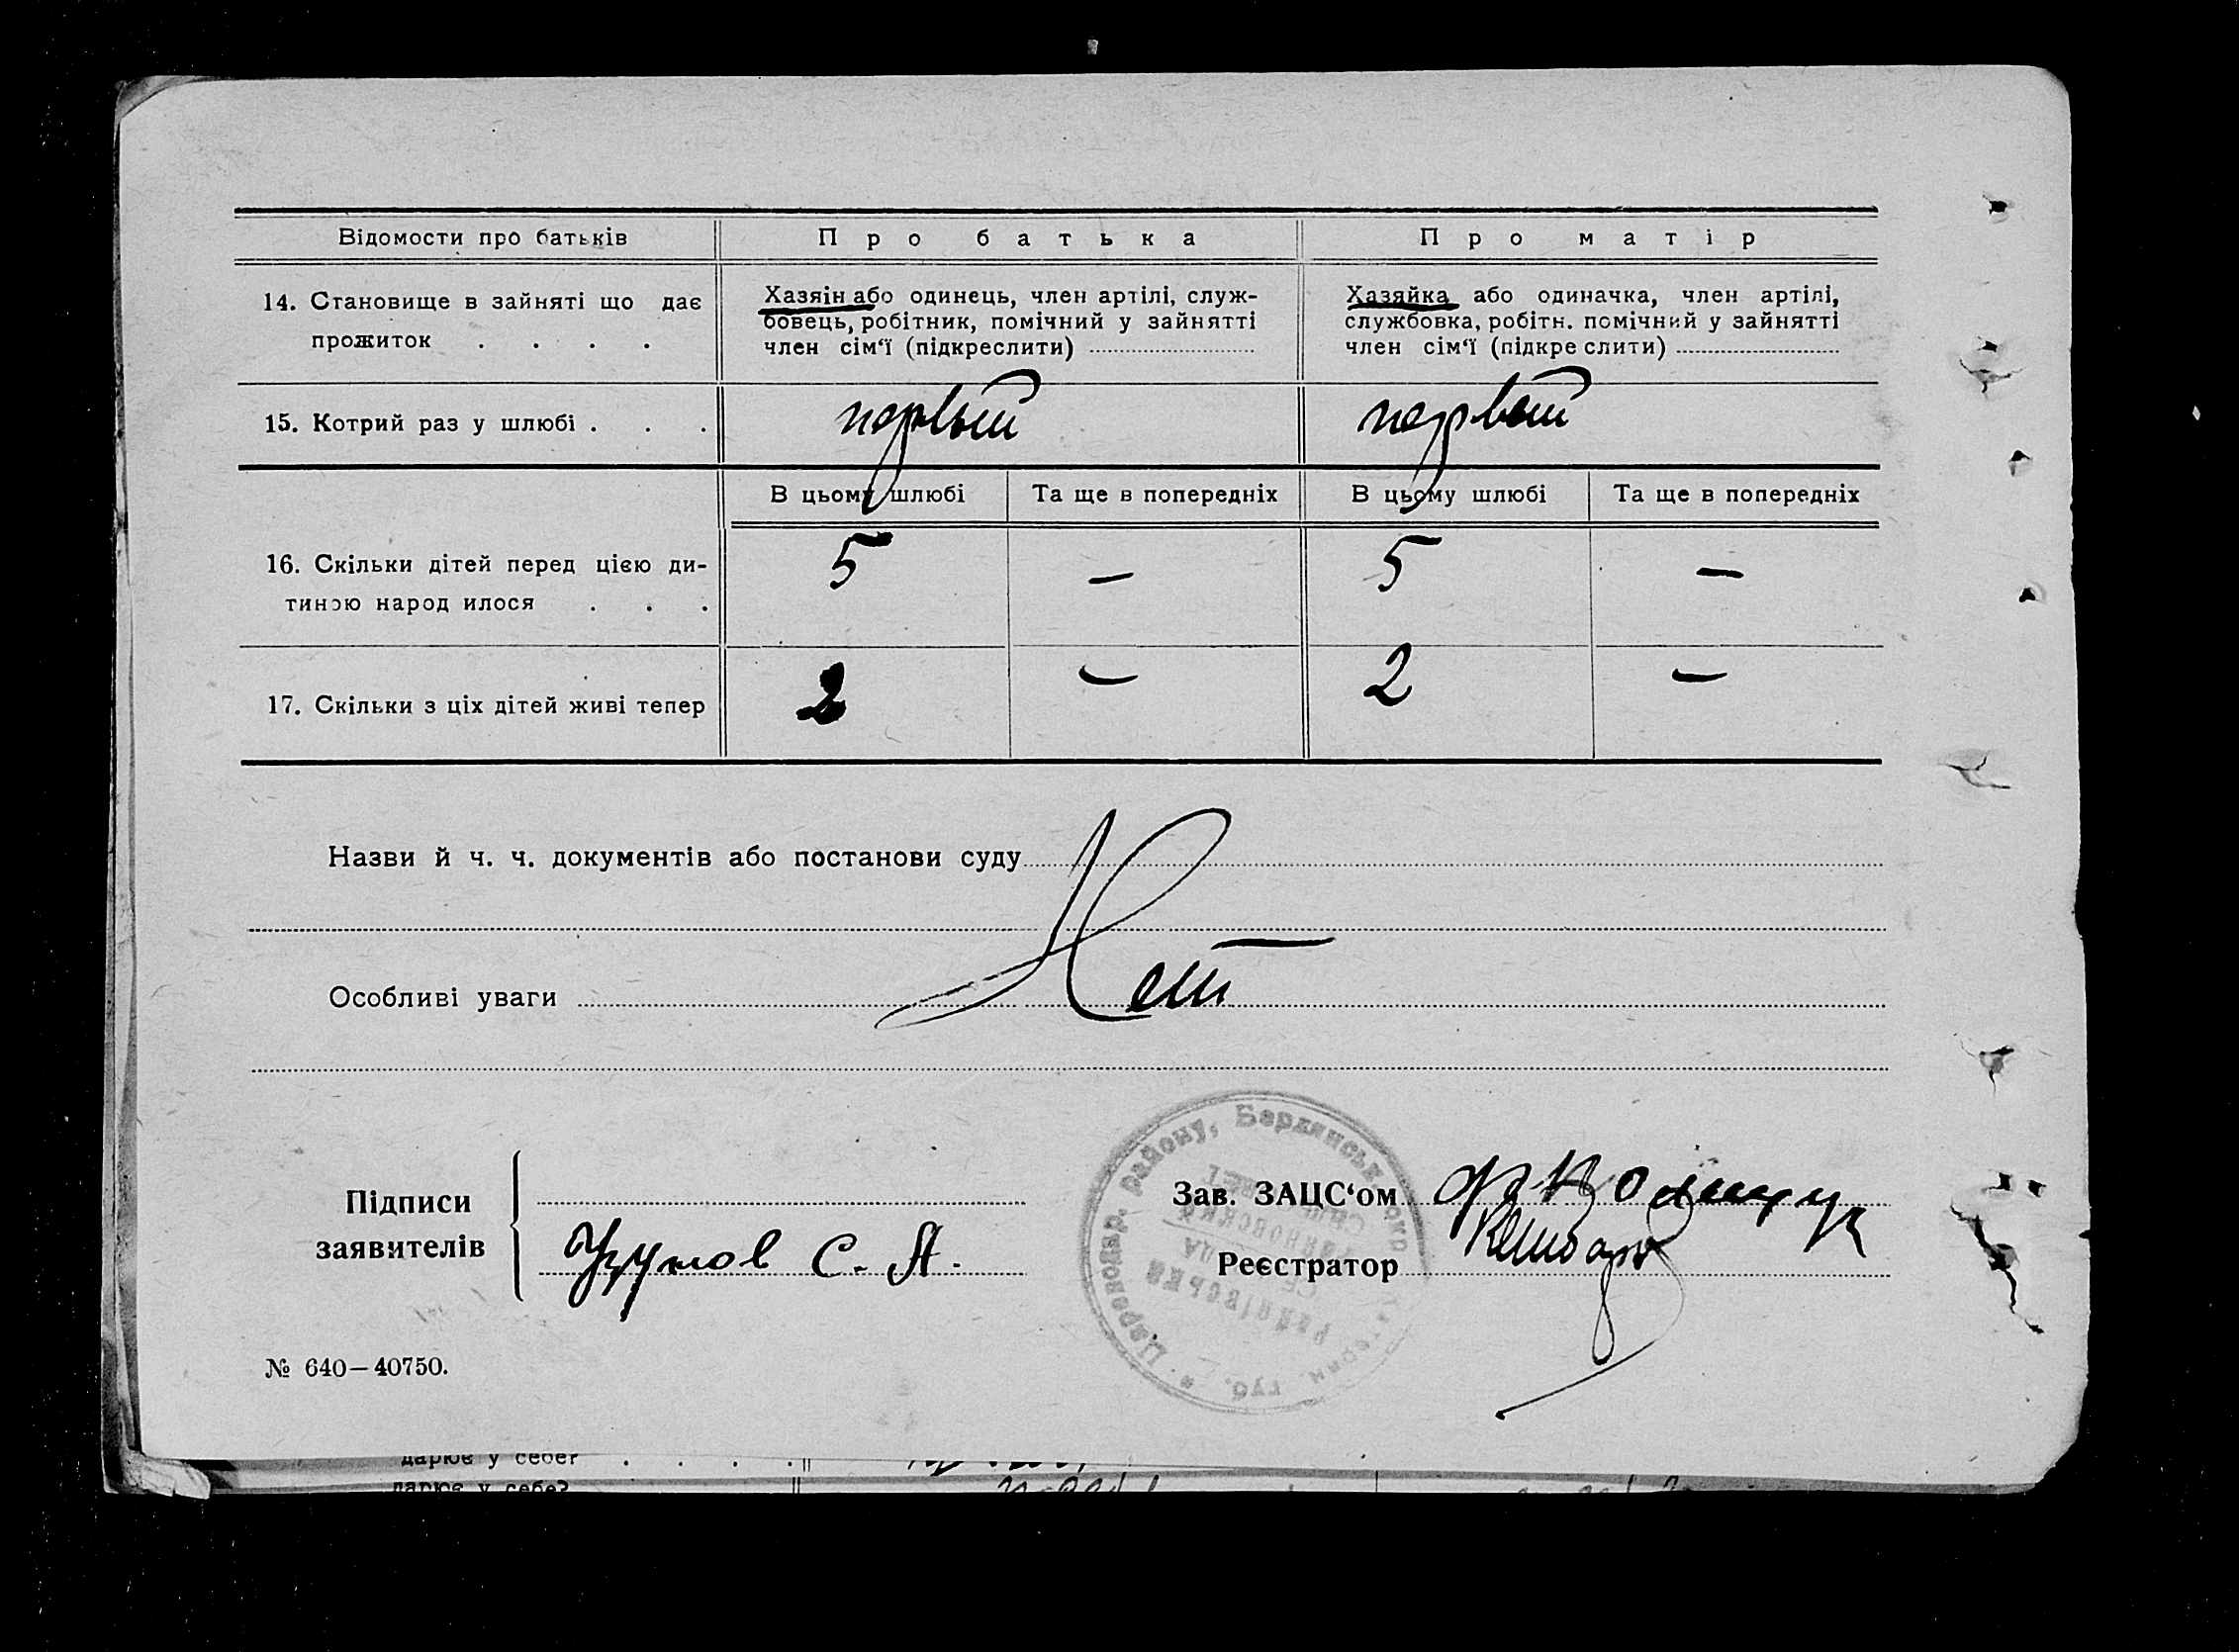 Відомости про батьків Про батька Про матір
14. Становище в зайняті що дає
прожиток . . . .
Хазяін або одинець, член артілі, служ-
бовець, робітник, помічний у зайнятті
член сім‘ї (підкреслити)
Хазяйка або одиначка, член артілі,
службовка, робітн. помічний у зайнятті
член сім‘ї (підкре слити)
15. Котрий раз у шлюбі . . . первый первый
В цьому шлюбі Та ще в попередніх В цьому шлюбі Та ще в попередніх
16. Скільки дітей перед цією ди-
тиною народ илося . . . 5 — 5 —
17. Скільки з ціх дітей живі тепер 2 — 2 —
Назви й ч. ч. документів або постанови суду
Нет
Особливі уваги
Підписи
заявителів
Узунов С. А.
Зав. ЗАЦС‘ом
Реєстратор
район̀у, Бердянського
№ 640—40750.
дарює у себе? . . . .
дарює у себе?